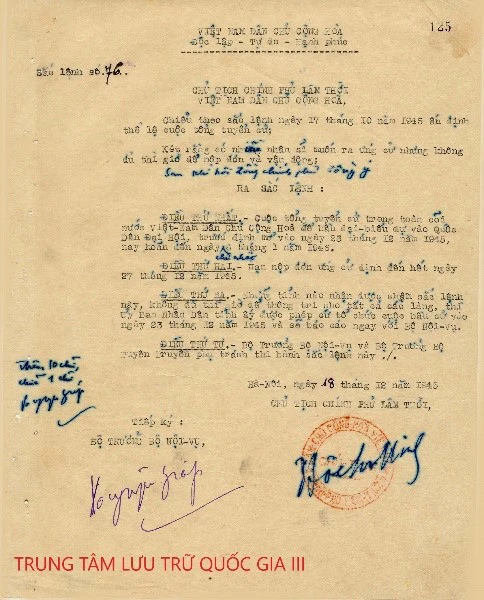 125
VIỆT NAM DÂN CHỦ CỘNG HÒA
Độc lập - Tự do - Hạnh phúc
Sắc lệnh số 76.
CHỦ TỊCH CHÍNH PHỦ LÂM THỜI
VIỆT NAM DÂN CHỦ CỘNG HOÀ,
Chiểu theo sắc lệnh ngày 17 tháng 10 năm 1945 ấn định
thể lệ cuộc tổng tuyển cử;
Xét rằng có nhiều nhân sĩ muốn ra ứng cử nhưng không
đủ thì giờ để nộp đơn và vận động;
Sau khi hội đồng chính phủ đồng ý
RA SẮC LỆNH :
ĐIỀU THỨ NHẤT.- Cuộc tổng tuyển cử trong toàn cõi
nước Việt-Nam Dân Chủ Cộng Hoà để bầu đại-biểu dự vào Quốc
Dân Đại Hội, trước định mở vào ngày 23 tháng 12 năm 1945,
nay hoãn đến ngày 6 tháng 1 năm 1946.
chủ nhật
ĐIỀU THỨ HAI.- Hạn nộp đơn ứng cử định đến hết ngày
27 tháng 12 năm 1945.
ĐIỀU THỨ BA.- Những tỉnh nào nhận được chậm sắc lệnh
này, không đủ thì giờ để thông tri cho tất cả các làng, thì
Uỷ Ban Nhân Dân tỉnh ấy được phép cứ tổ chức cuộc bầu cử vào
ngày 23 tháng 12 năm 1945 và sẽ báo cáo ngay với Bộ Nội-Vụ.
ĐIỀU THỨ TƯ.- Bộ Trưởng Bộ Nội-Vụ và Bộ Trưởng Bộ
Tuyên Truyền phụ trách thi hành sắc lệnh này ./.
Thêm 10 chữ,
chữa 1 chữ
Vo nguyên Giáp
Hà-Nội, ngày 18 tháng 12 năm 1945
CHỦ TỊCH CHÍNH PHỦ LÂM THỜI,
Tiếp ký :
BỘ TRƯỞNG BỘ NỘI-VỤ,
Vo nguyên Giáp
Hồ Chí Minh
TRUNG TÂM LƯU TRỮ QUỐC GIA III